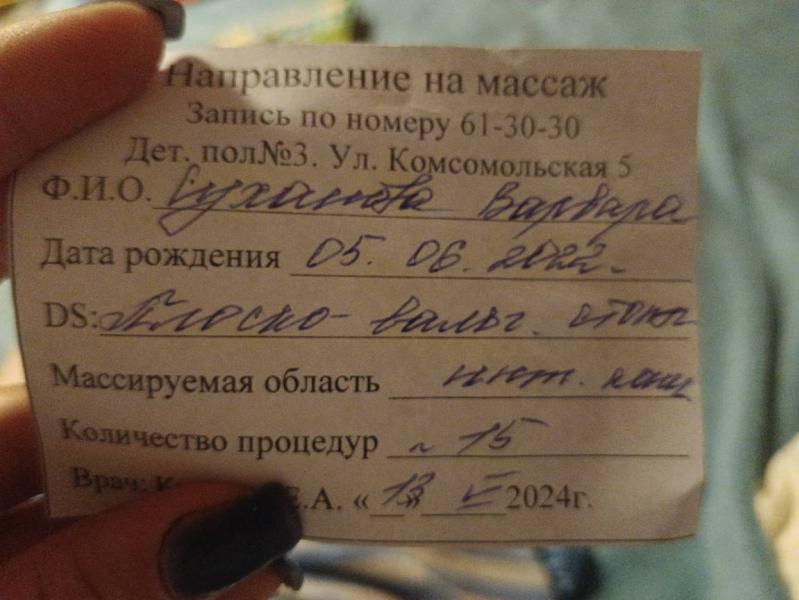 Направление на массаж
Запись по номеру 61-30-30
Дет. пол№3. Ул. Комсомольская 5
Ф.И.О. Суханова Варвара
Дата рождения 05. 06. 2022.
DS: Плоско-вальг. стопы
Массируемая область ниж. кон
Количество процедур 15
Врач: Е.А. «13» VI 2024г.